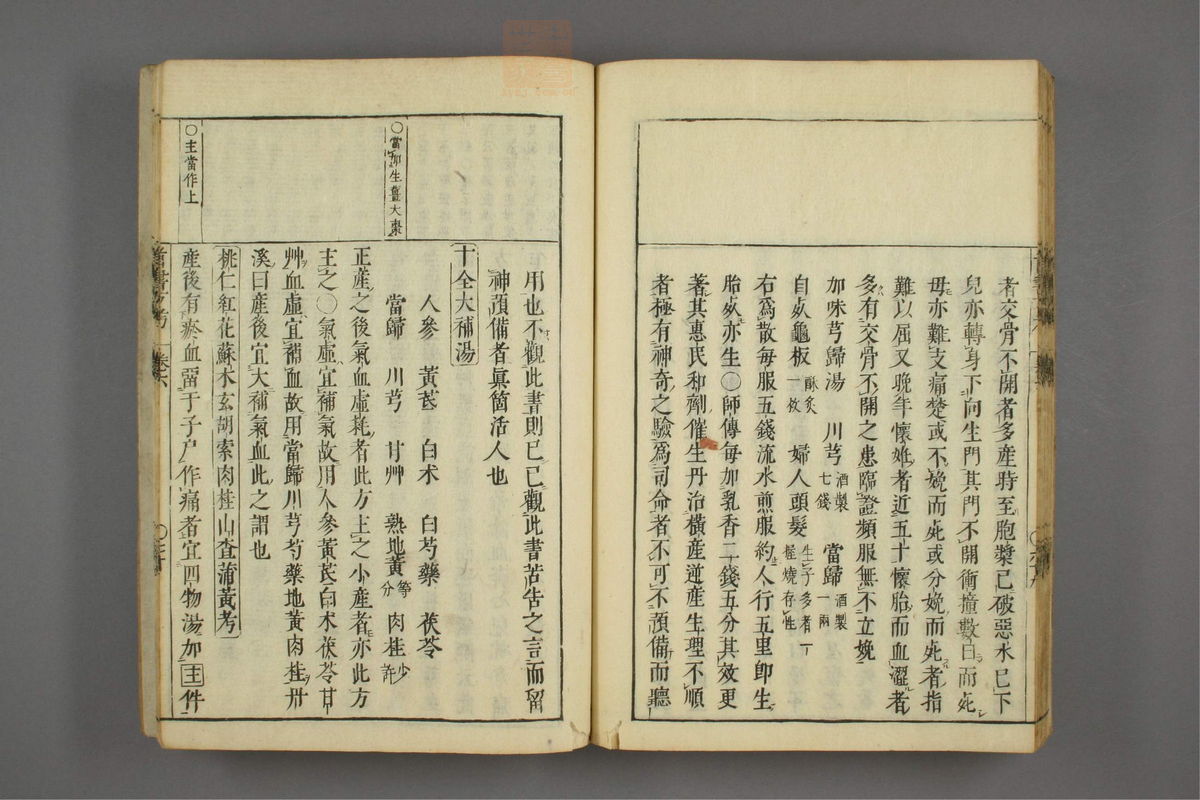 者交骨不開者多產時至胞漿已破惡水已下
兒亦轉身下向生門其門不開衝撞數日而死
母亦難支痛楚或不娩而死或分娩而死者指
難以屈又晚年懷娠者近五十懷胎而血澀者
多有交骨不開之患臨證頻服無不立娩
加味芎歸湯　川芎酒製七錢　當歸酒製一兩
自死龜板酥炙一枚　婦人頭髮生子多者一丫燒存性
右爲散每服五錢流水煎服約人行五里卽生
胎死亦生○師傳每加乳香二錢五分其效更
著其惠民和劑催生丹治橫產逆產生理不順
者極有神奇之驗爲司命者不可不預備而聽
用也不觀此書則已已觀此書苦告之言而留
神預備者眞箇活人也
十全大補湯
○當加生薑大棗
人參　黃芪　白朮　白芍藥　茯苓
當歸　川芎　甘艸　熟地黃等分　肉桂少許
正產之後氣血虛耗者此方主之小產者亦此方
主之○氣虛宜補氣故用人參黃芪白朮茯苓甘
艸血虛宜補血故用當歸川芎芍藥地黃肉桂丹
溪曰產後宜大補氣血此之謂也
桃仁紅花蘇木玄胡索肉桂山査蒲黃考
○主當作上
產後有瘀血畱于子戶作痛者宜四物湯加主件